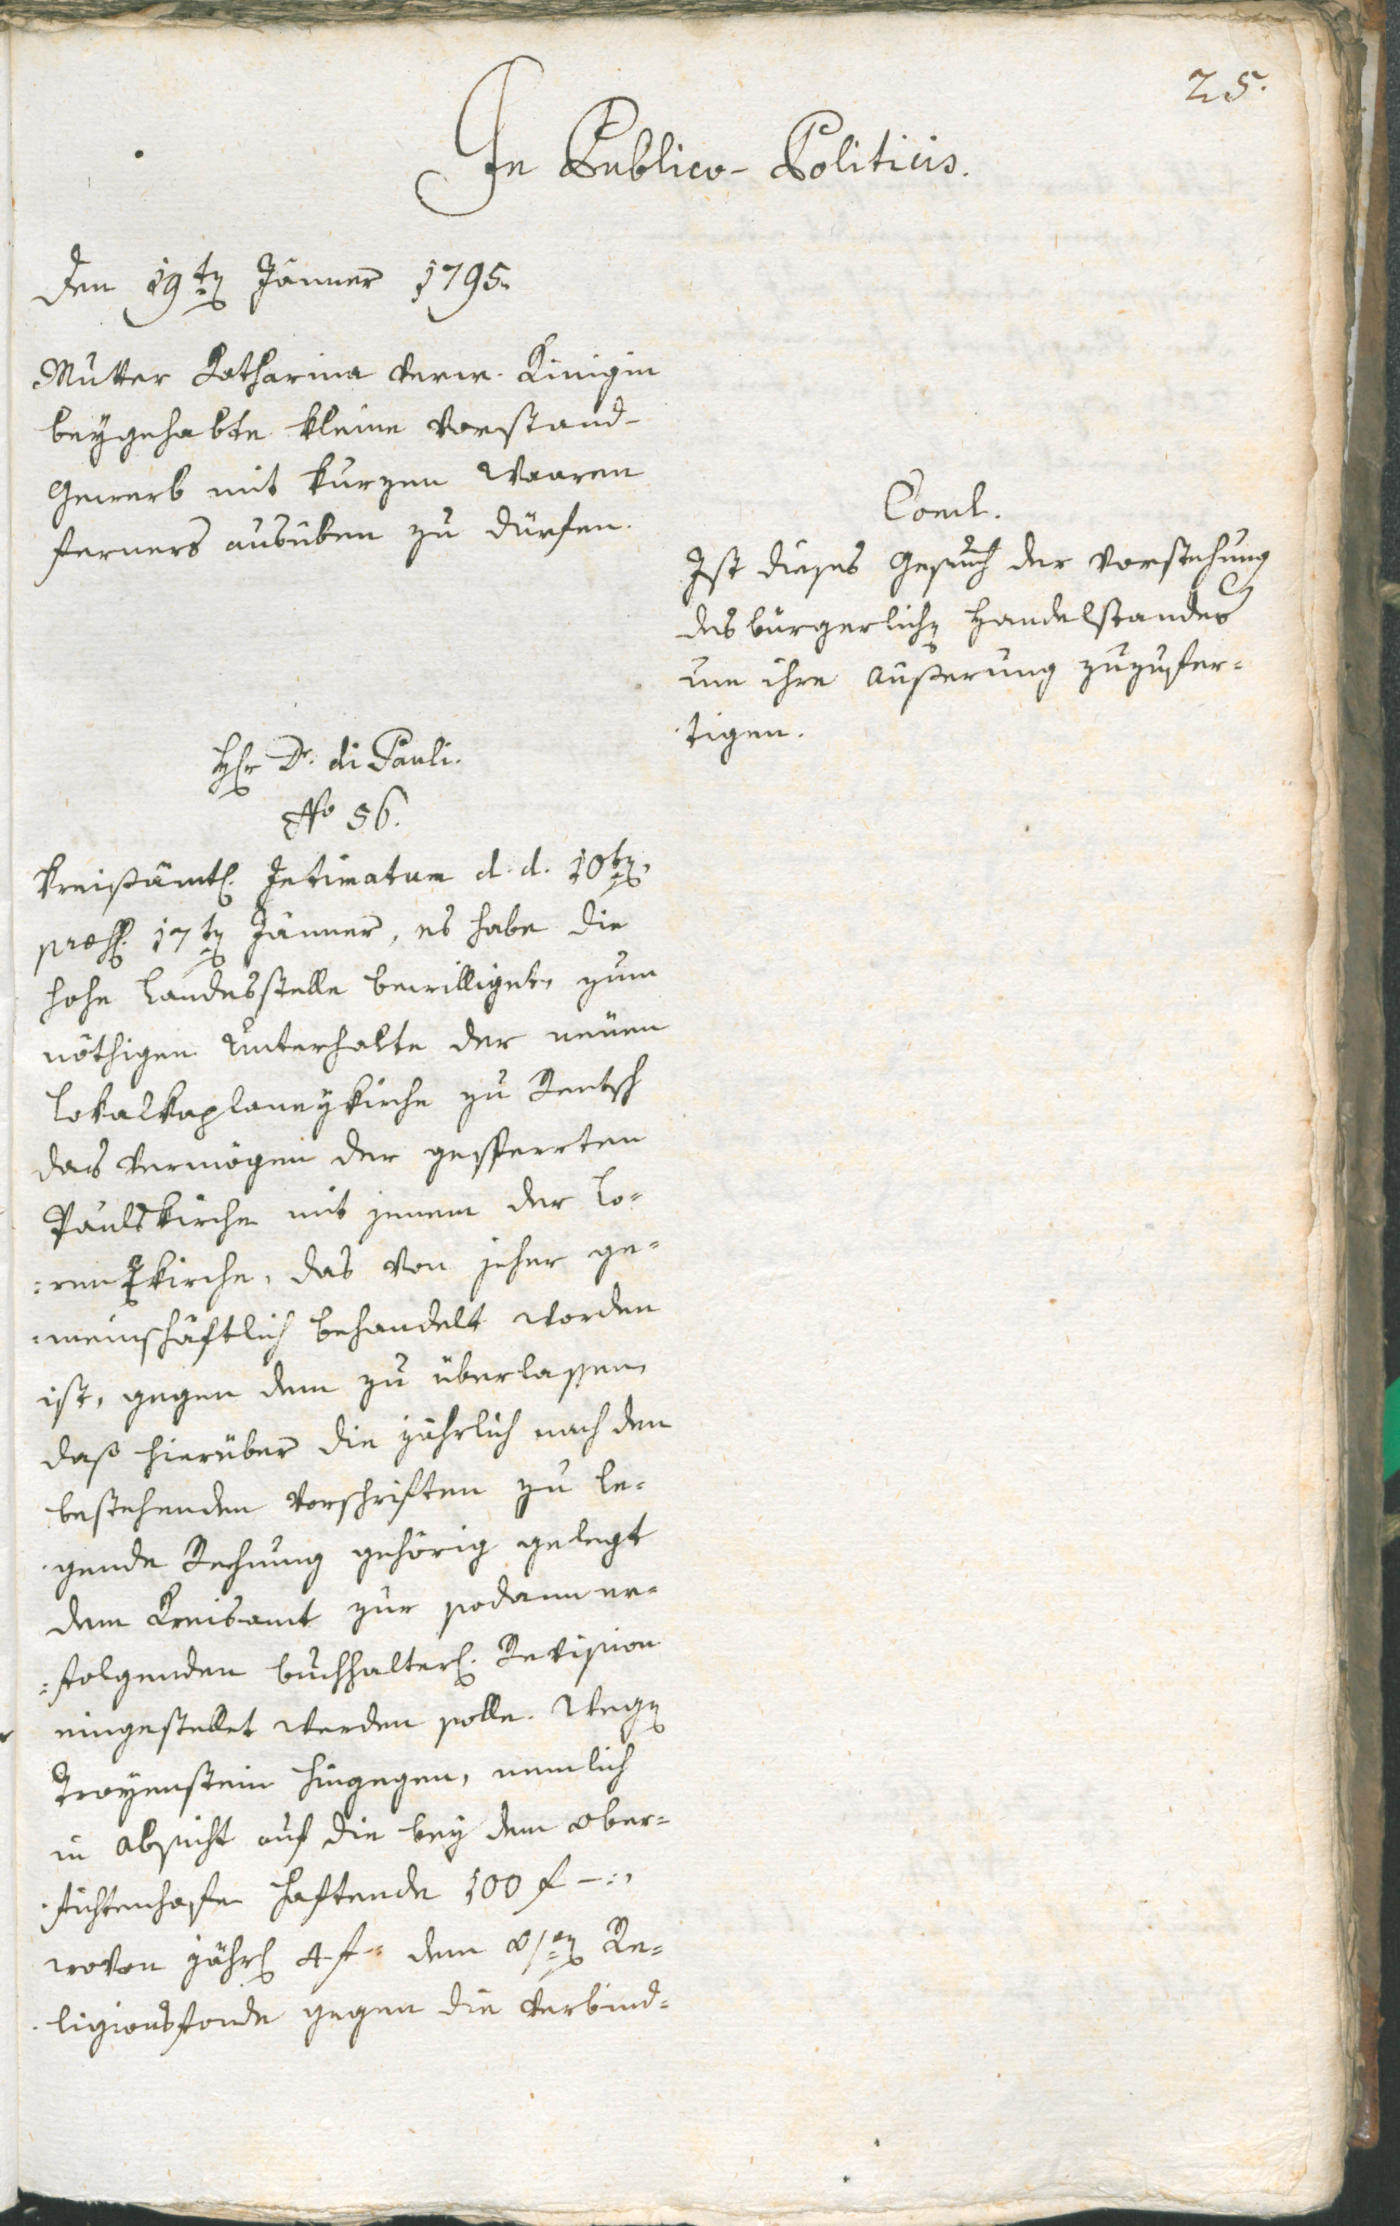 25.
In Publico-Politicis.
den 19ten Jänner 1795.
Mutter Katharina verw. Kinigin
beygehabte kleine Vorstand-
Gewerb mit kurzen Waaren
ferners ausüben zu dürfen.
Concl.
Ist dieses Gesuch der Vorstehung
des bürgerlichen Handelstandes
um ihre Äußerung zuzufer=
tigen.
H: Dr. di Pauli.
No 56.
Kreisämtl. Intimatum d. d. 10ten
præs. 17ten Jänner, es habe die
hohe Landesstelle bewilliget, zum
nöthigen Unterhalte der neuen
Lokalkaplaneykirche zu Rentsch
das Vermögen der gesperrten
Paulskirche mit jenem der Lo=
=renzkirche, das von jeher ge=
=meinschäftlich behandelt worden
ist, gegen dem zu überlassen,
daß hierüber die jährlich nach den
bestehenden Vorschriften zu le=
gende Rechnung gehörig gelegt
dem Kreisamt zur sodann er=
=folgenden buchhalter. Revision
eingestellet werden solle. Wegen
Troyenstein hingegen, nemlich
in Absicht auf die bey dem Ober=
fichtenhofe haftende 100 f –:,
wovon jährl 4 f – dem Religions=
ligionsfonde gegen die Verbind=